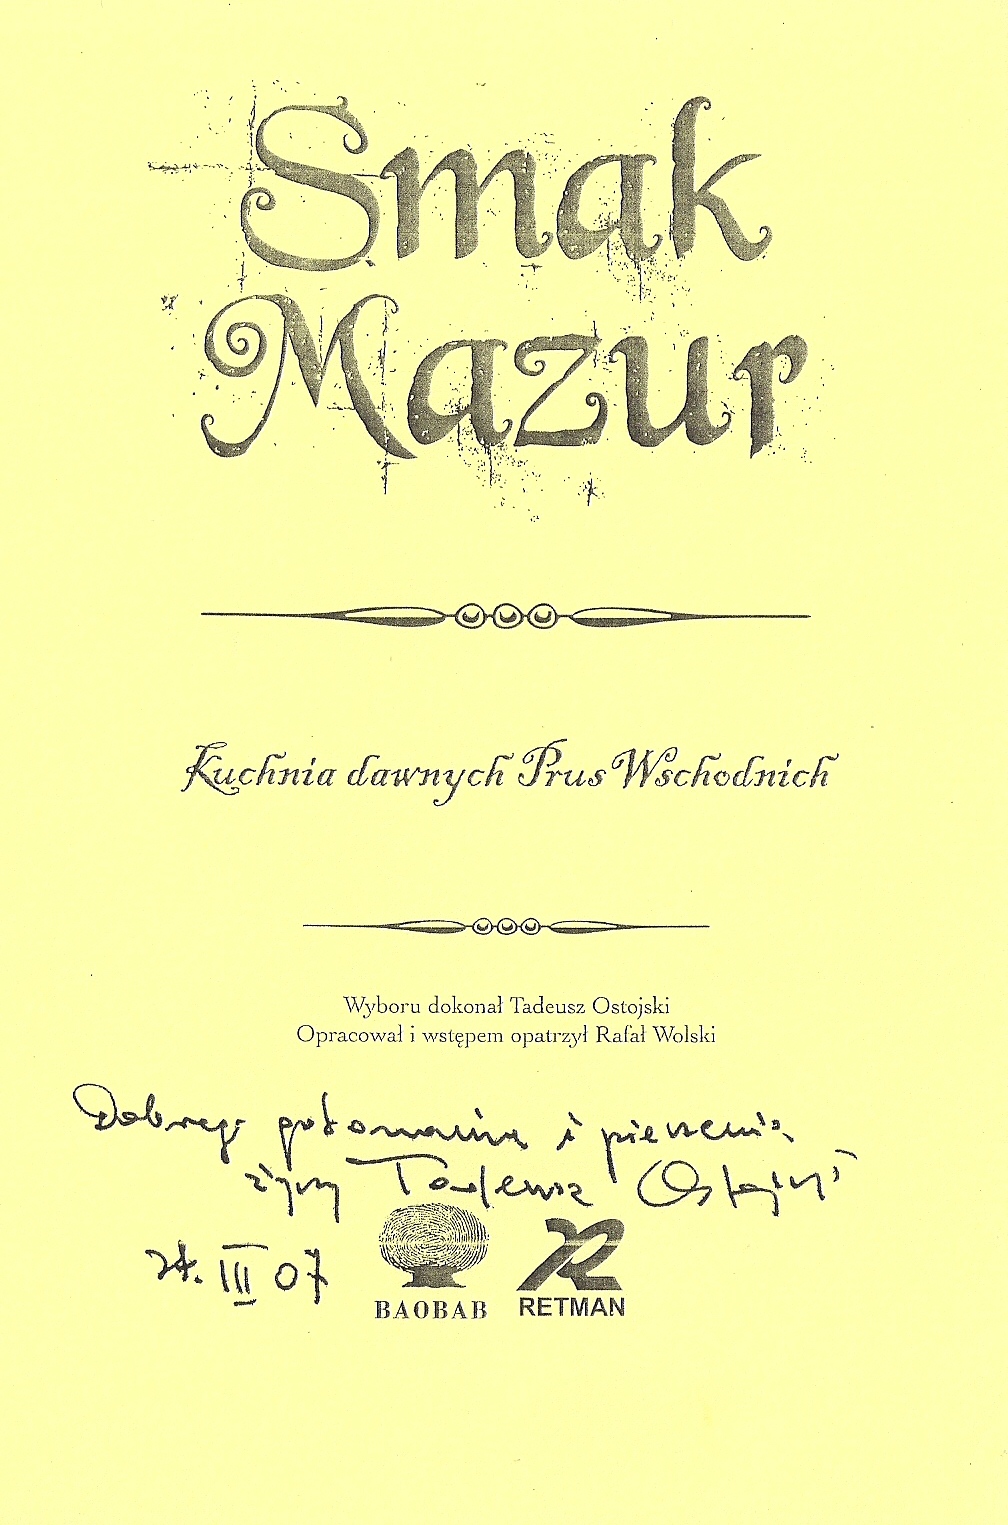 Smak
Mazur
Kuchnia dawnych Prus Wschodnich
Wyboru dokonał Tadeusz Ostojski
Opracował i wstępem opatrzył Rafał Wolski
Dobrego gotowania i pieczenia
życzy Tadeusz Ostojski
24. III 07
BAOBAB
RETMAN